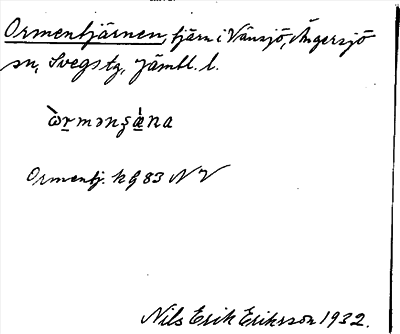 Ormentjärnen, tjärn i Vänsjö, Ängersjö
sn, Svegs tg, Jämtl. l.
Ormentj. k g 83 NV
Nils Erik Eriksson 1932.